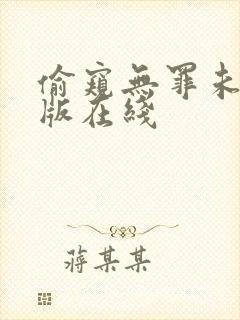 偷窺無罪未
版在綫
蔣某某